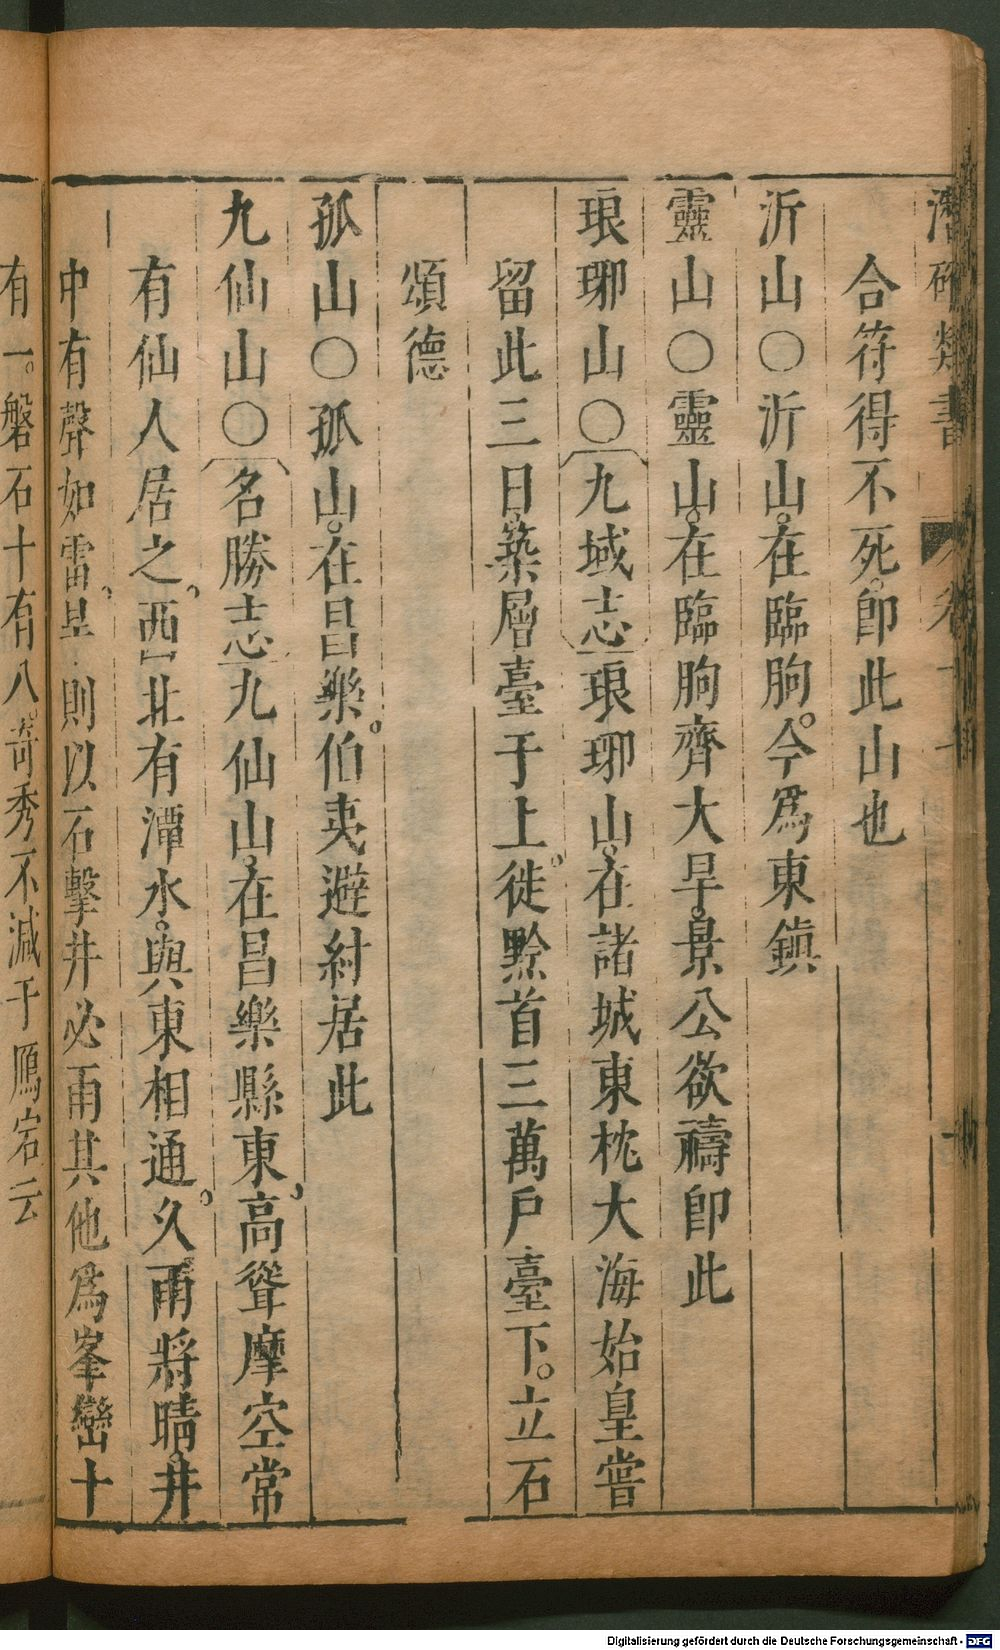 潛確類書
合符得不死。卽此山也
沂山○沂山。在臨朐。今爲東鎭
靈山○靈山。在臨朐齊大旱。景公欲禱卽此
琅琊山○九域志琅琊山。在諸城東枕大海始皇嘗
留此三日。築層臺于上。徙黔首三萬戶臺下。立石
頌德
孤山○孤山。在昌樂。伯夷避紂居此
九仙山○名勝志九仙山。在昌樂縣東。高聳摩空常
有仙人居之。西北有潭水。與東相通。久雨將晴。井
中有聲如雷。旱則以石擊井必雨其他爲峯巒十
有一。磐石十有八。奇秀不減于鴈宕云
Digitalisierung gefördert durch die Deutsche Forschungsgemeinschaft - DFG